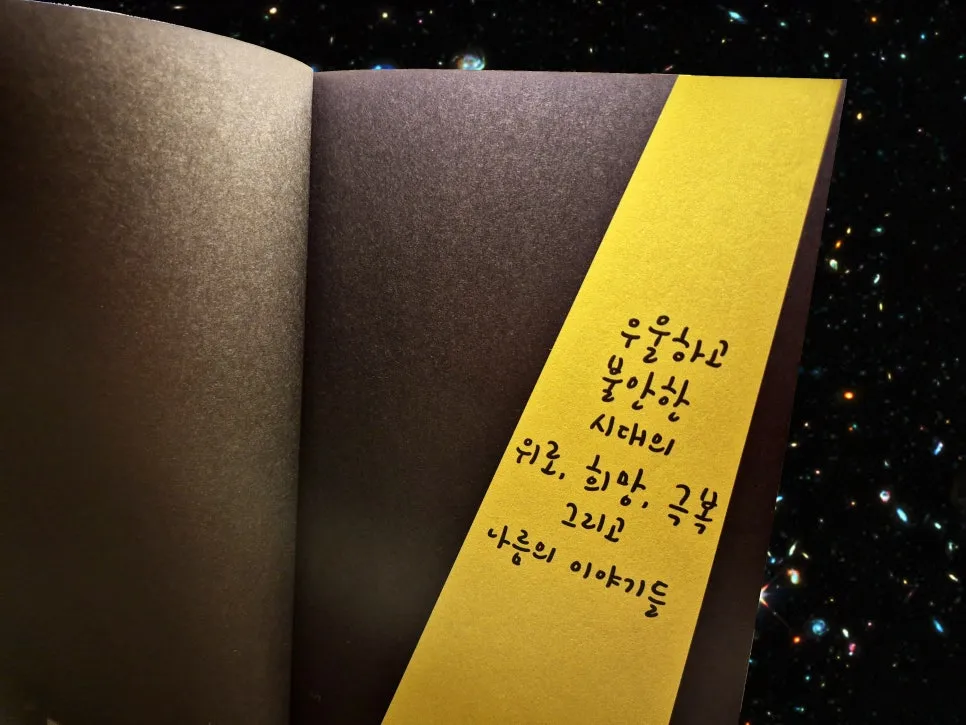 우울하고
불안한
시대의
위로, 희망, 극복
그리고
나름의 이야기들